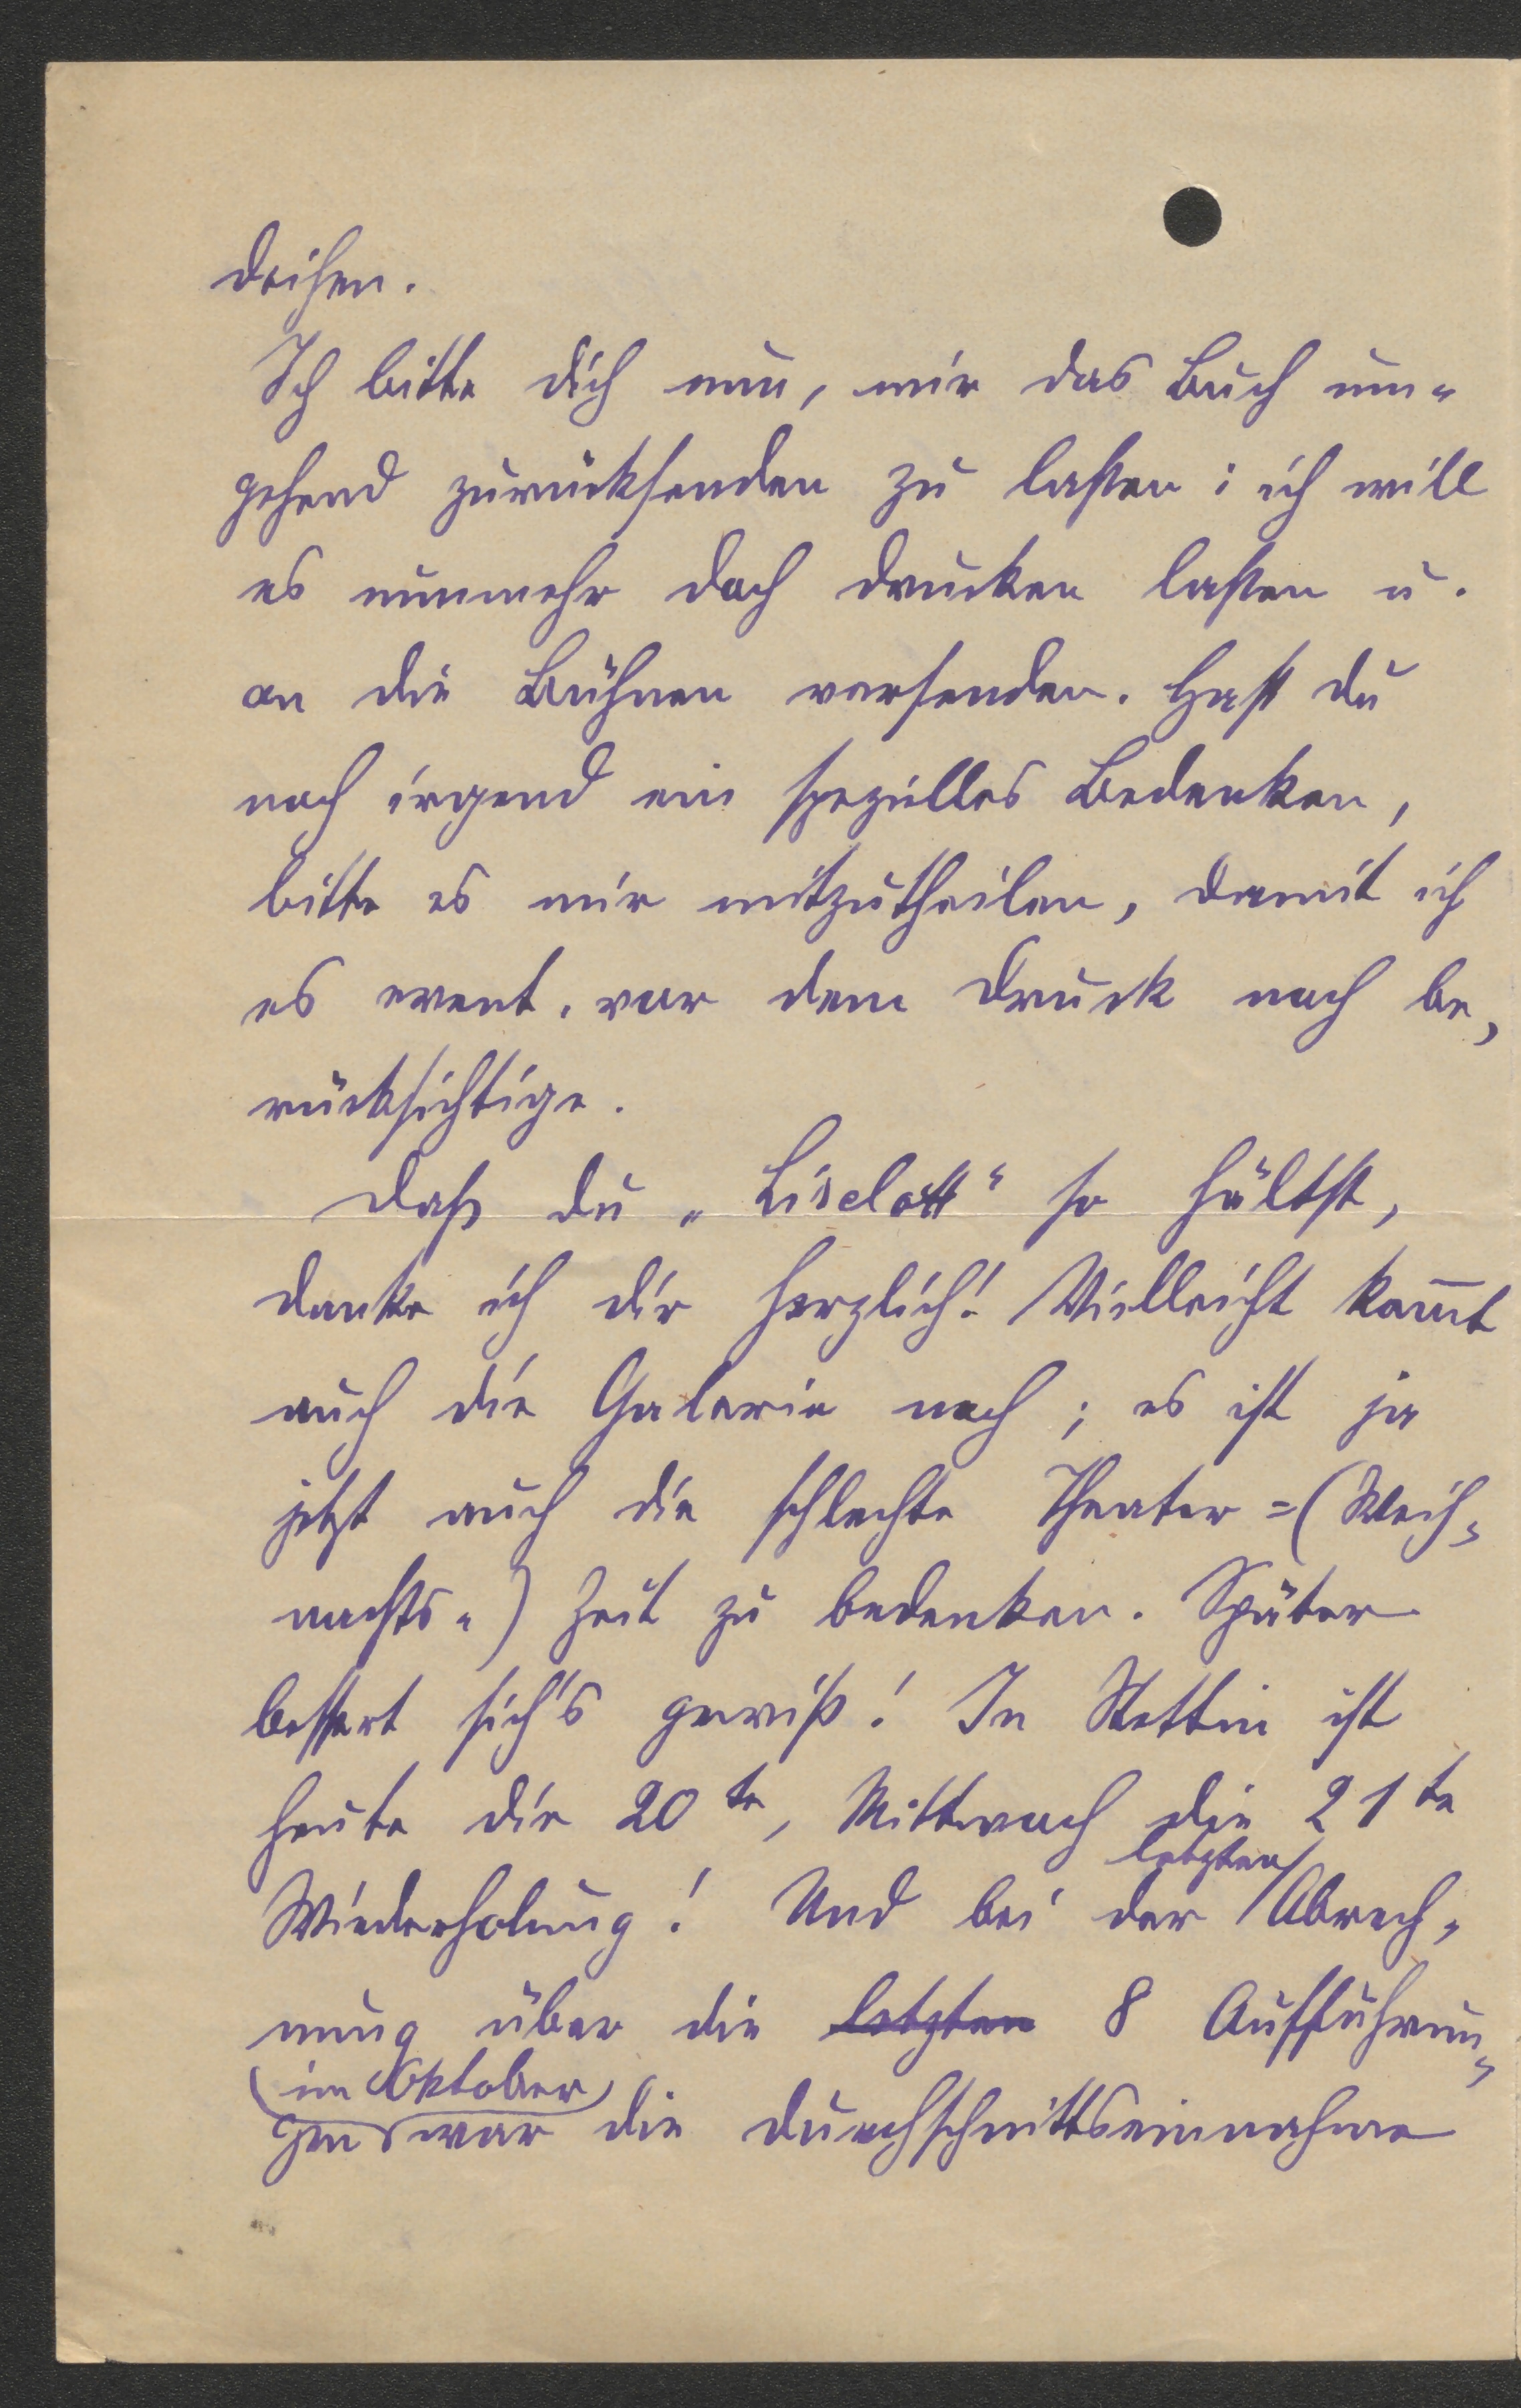 deihen.
Ich bitte dich nun, mir das Buch um-
gehend zurücksenden zu laßen; ich will
es nunmehr doch drucken laßen u.
an die Bühnen versenden. Hast du
noch irgend ein spezielles Bedenken,
bitte es mir mitzutheilen, damit ich
es event. vor dem Druck noch be-
rücksichtige.
Daß du „Liselott“ so hältst,
danke ich dir herzlich! Vielleicht kom̅t
auch die Galerie noch; es ist ja
jetzt auch die schlechte Theater=(Weih-
nachts-) Zeit zu bedenken. Später
bessert sich's gewiß! In Stettin ist
heute die 20te, Mittwoch die 21te
letzten
Wiederholung! Und bei der Abrech-
nung über die letzten 8 Aufführun-
im Oktober
gen war die Durchschnittseinnahme